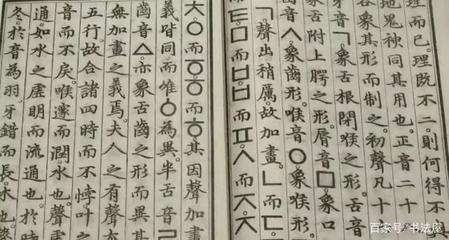 理而已。理既不二。則何得不
地鬼神同其用也。正音二十
各象其形而制之。初聲凡十
牙音ㄱ。象舌根閉喉之形。舌音
象舌附上腭之形。脣音ㅁ。象
象齒形。喉音ㅇ。象喉形。
ㄱ。聲出稍厲。故加畫。ㄴ而ㄷ。
而ㅌ。ㅁ而ㅂ。ㅂ而ㅍ。ㅅ而
ㅊ。ㅇ而ㆆ。ㆆ而ㅎ。其因聲加畫
義皆同。而唯ㆁ為異。半舌音
齒音ㅿ。亦象舌齒之形而異其
無加畫之義焉。夫人之有聲
五行。故合諸四時而不悖。叶之
音而不戾。喉邃而潤。水也。聲
通。如水之虛明而流通也。於時
冬。於音為羽。牙錯而長。木也。
百家号/书法屋